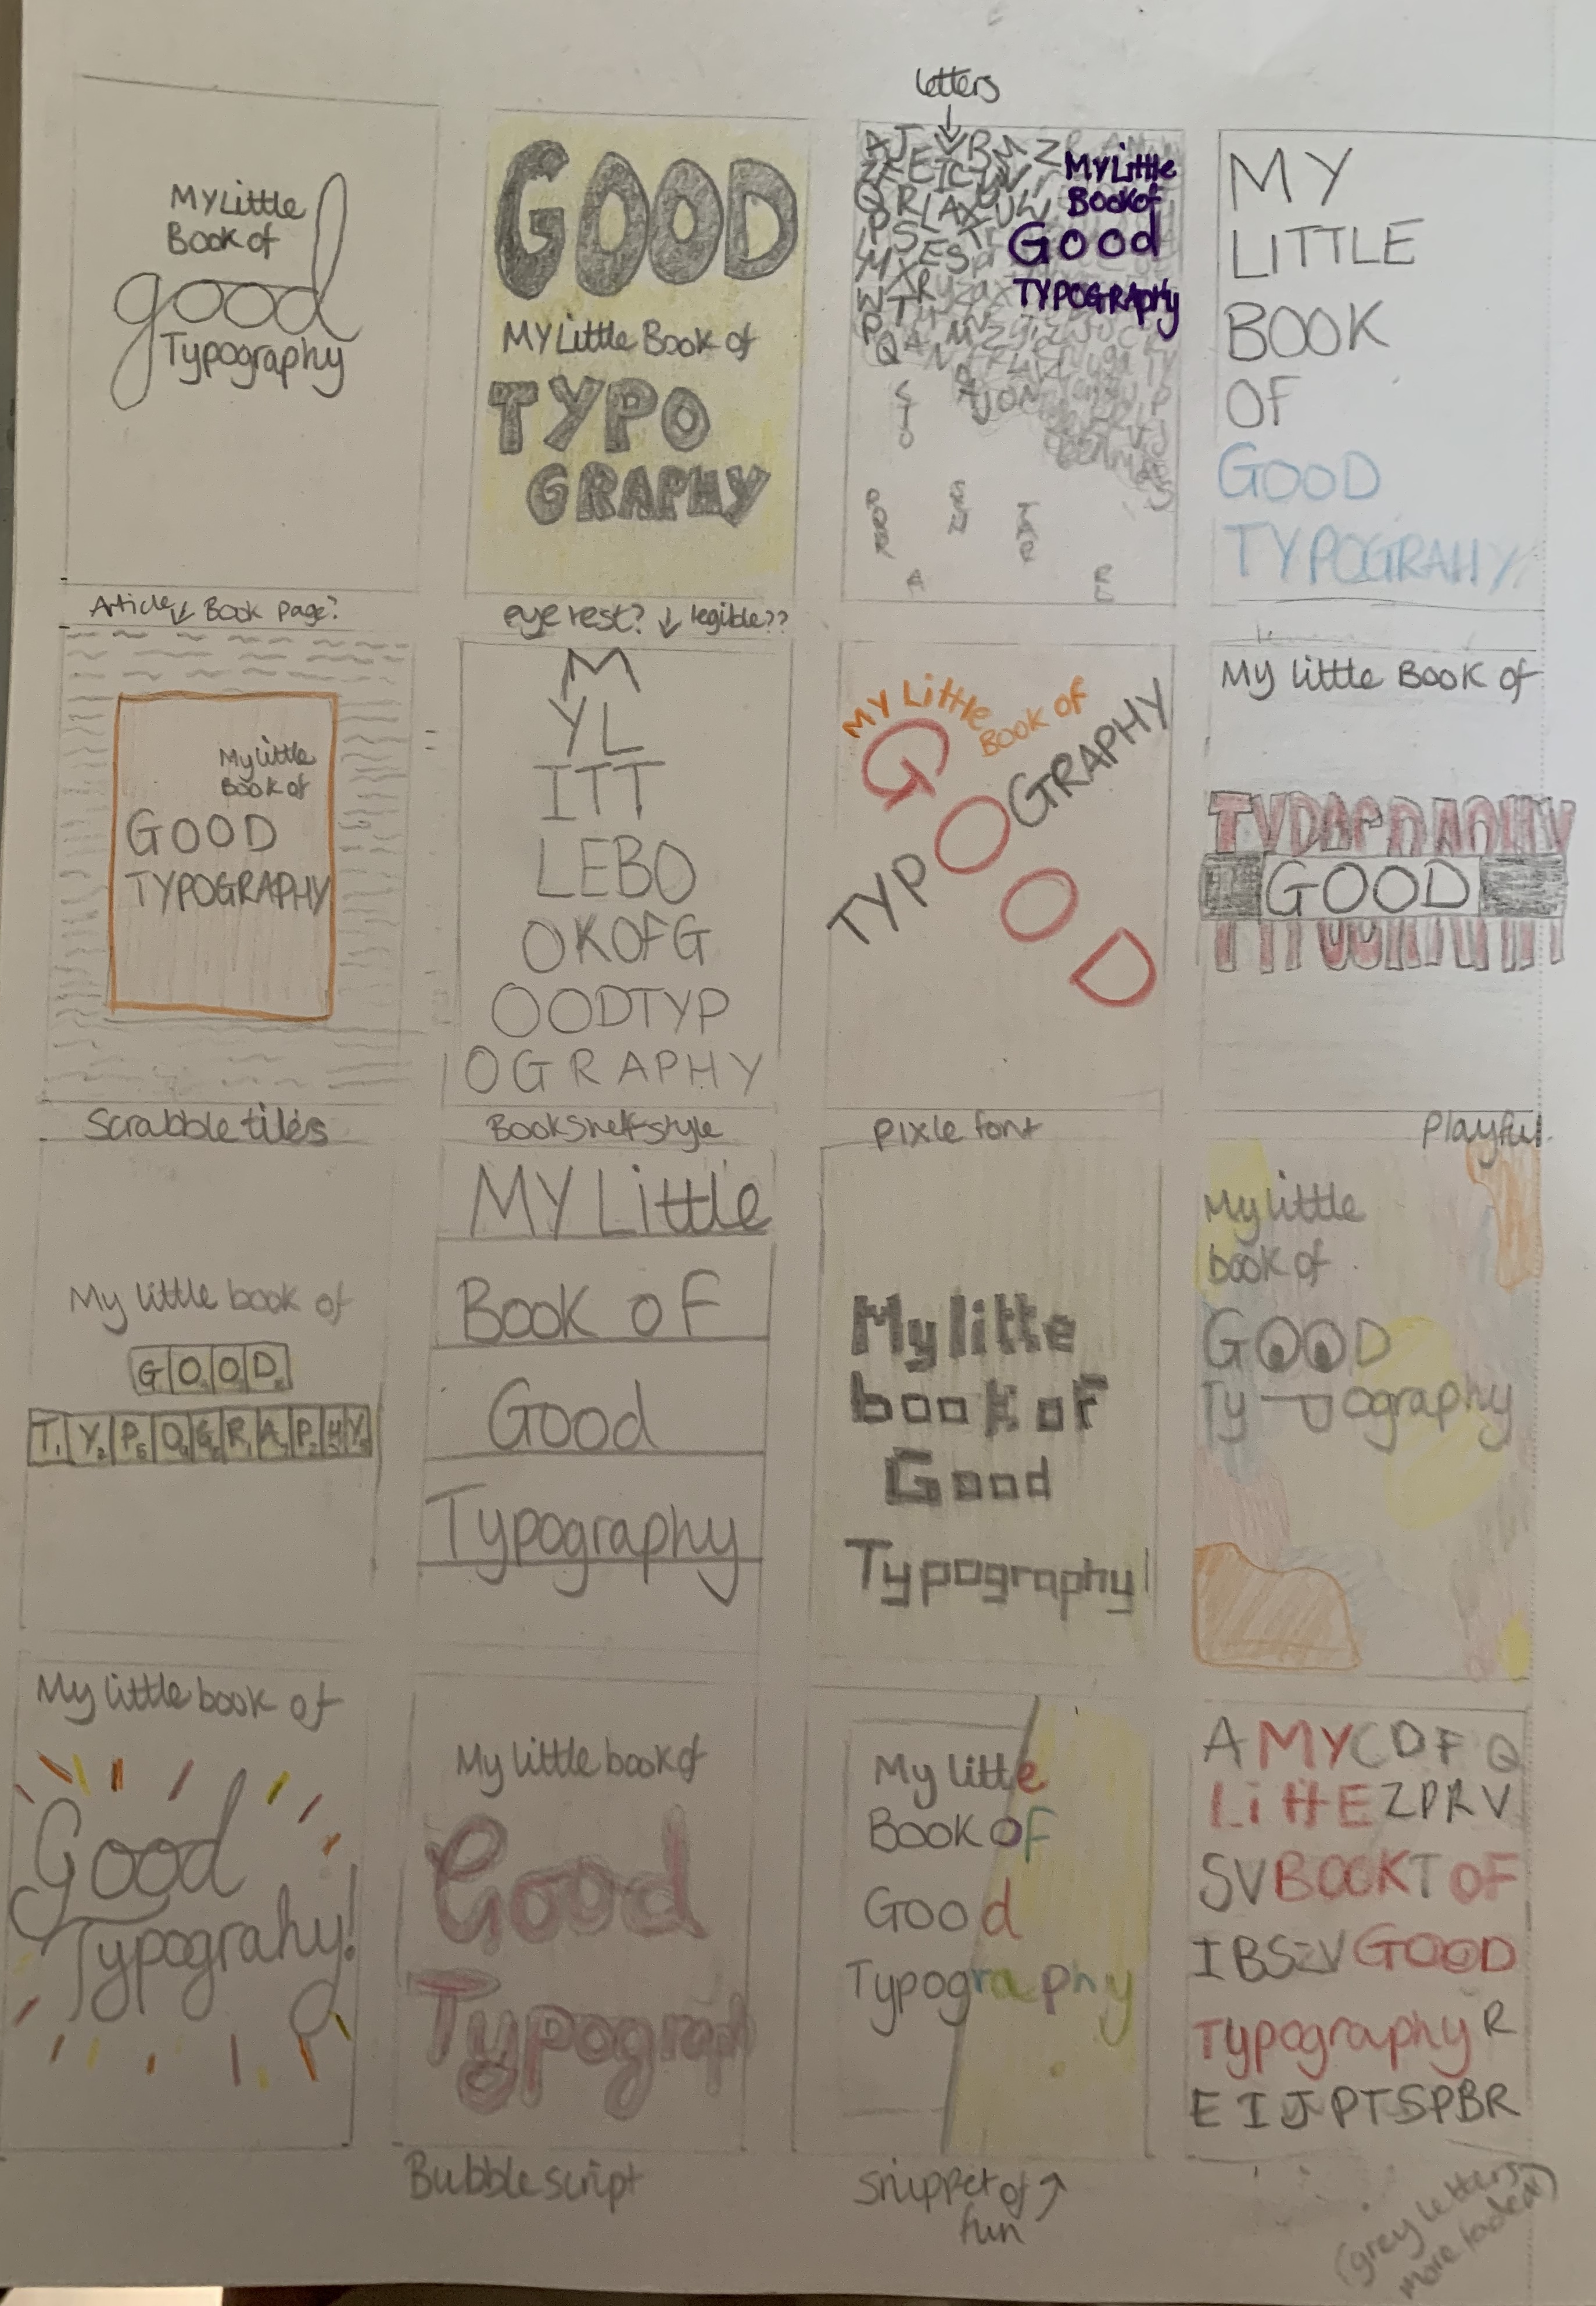 letters
My Little
Book of
good
Typography
GOOD
My Little Book of
TYPO
GRAPHY
My Little
Book of
Good
TYPOGRAPHY
MY
LITTLE
BOOK
OF
GOOD
TYPOGRAHY
Article Book page?
My little
Book of
GOOD
TYPOGRAPHY
eye rest? legible??
M
YL
ITT
LEBO
OKOFG
OODTYP
OGRAPHY
MY Little
BOOK of
GOOD
TYP GRAPHY
My little Book of
GOOD
Scrabble tiles
My little book of
GOOD
TYPOGRAPHY
Bookshelf style
MY Little
Book of
Good
Typography
pixle font
My litte
book of
Good
Typography
Playful
My little
book of
GOOD
Typography
My little book of
Good
Typograhy!
My little book of
Good
Typograph
Bubble script
My little
Book of
Good
Typography
snippet of
fun
A MY C D F Q
LittlE Z P R V
SV BOOK T OF
I B S Z V GOOD
Typography R
E I J P T S P B R
(grey letters
more faded)